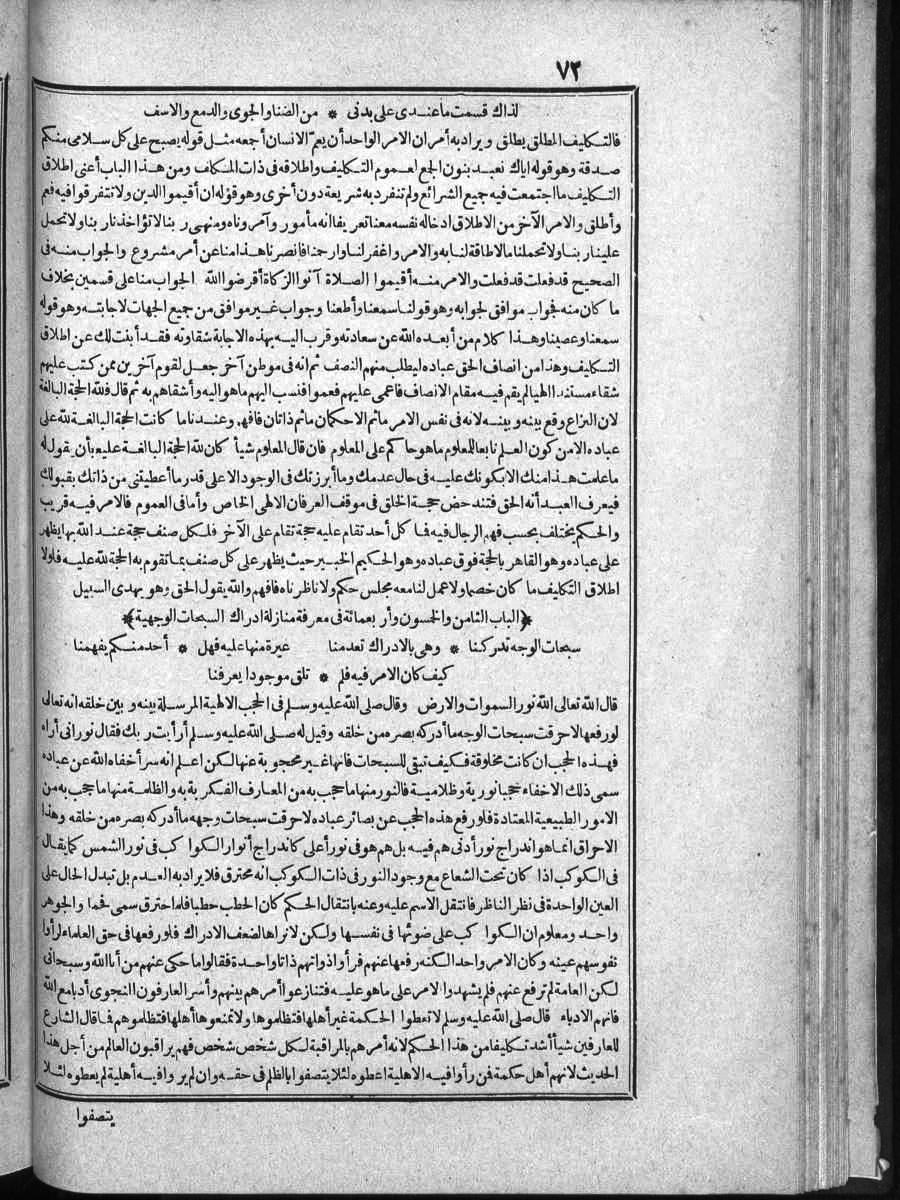 ٧٢
لذاك قسمت ما عندي على بدني * من الضنا والجوى والدمع والاسف
فالتكليف المطلق يطلق ويراد به أمران الامر الواحد أن يعم الانسان أجمعه مثل قوله يصبح على كل سلامى منكم
صدقة وهو قوله اياك نعبد بنون الجمع لعموم التكليف واطلاقه في ذات المكلف ومن هذا الباب أعنى اطلاق
التكليف ما اجتمعت فيه جميع الشرائع ولم تنفرد به شريعة دون أخرى وهو قوله ان أقيموا الدين ولا تتفرقوا فيه فعم
وأطلق والامر الآخر من الاطلاق ادخاله نفسه معنا تعريفا انه مأمور وآمر وناه ومنهى ربنا لا تؤاخذنا ربنا ولا تحمل
علينا ربنا ولا تحملنا ما لا طاقة لنا به والامر واغفر لنا وارحمنا فانصرنا هذا منا عن أمر مشروع والجواب منه في
الصحيح قد فعلت قد فعلت والامر منه أقيموا الصلاة آتوا الزكاة أقرضوا الله الجواب منا على قسمين بخلاف
ما كان منه فجواب موافق لجوابه وهو قولنا سمعنا وأطعنا وجواب غير موافق من جميع الجهات لاجابته وهو قوله
سمعنا وعصينا وهذا كلام من أبعده الله عن سعادته وقرب اليه بهذه الاجابة شقاوته فقد أبنت لك عن اطلاق
التكليف وهذا من انصاف الحق عباده ليطلب منهم النصف ثم انه في موطن آخر جعل لقوم آخرين ممن كتب عليهم
شقاء مستندا الهيا لم يقم فيه مقام الانصاف فاعمى عليهم فعموا فنسب اليهم ما هو اليه وأشقاهم به ثم قال فلله الحجة البالغة
لان النزاع وقع بينه وبينه لانه في نفس الامر ما ثم الا حكمان ما ثم ذاتان فافهم وعندنا ما كانت الحجة البالغة لله على
عباده الا من كون العلم تابعا للمعلوم ما هو حاكم على المعلوم فان قال المعلوم شيأ كان لله الحجة البالغة عليه بأن يقول له
ما علمت هذا منك الا بكونك عليه في حال عدمك وما أبرزتك في الوجود الا على قدر ما أعطيتنى من ذاتك بقبولك
فيعرف العبد أنه الحق فتندحض حجة الخلق في موقف العرفان الالهى الخاص وأما في العموم فالامر فيه قريب
والحكم يختلف بحسب فهم الرجال فيه فما كل أحد تقام عليه حجة تقام على الآخر فلكل صنف حجة عند الله بها يظهر
على عباده وهو القاهر بالحجة فوق عباده وهو الحكيم الخبير حيث يظهر على كل صنف بما تقوم به الحجة لله عليه فلولا
اطلاق التكليف ما كان خصما ولا عمل لنا معه مجلس حكم ولا ناظرناه فافهم والله يقول الحق وهو يهدى السبيل
﴿الباب الثامن والخمسون وأربعمائة في معرفة منازلة ادراك السبحات الوجهية﴾
سبحات الوجه تدركنا * وهى بالادراك تعدمنا غيرة منها عليه فهل * أحد منكم يفهمنا
كيف كان الامر فيه فلم * تلق موجودا يعرفنا
قال الله تعالى الله نور السموات والارض وقال صلى الله عليه وسلم في الحجب الالهية المرسلة بينه وبين خلقه انه تعالى
لو رفعها لاحرقت سبحات الوجه ما أدركه بصره من خلقه وقيل له صلى الله عليه وسلم أرأيت ربك فقال نورانى أراه
فهذه الحجب ان كانت مخلوقة فكيف تبقى للسبحات فانها غير محجوبة عنها لكن اعلم انه سر أخفاه الله عن عباده
سمى ذلك الاخفاء حجبا نورية وظلامية فالنور منها ما حجب به من المعارف الفكرية به والظلمة منها ما حجب به من
الامور الطبيعية المعتادة فلو رفع هذه الحجب عن بصائر عباده لاحرقت سبحات وجهه ما أدركه بصره من خلقه وهذا
الاحراق انما هو اندراج نور أدنى هم فيه بل هم هو في نور أعلى كاندراج أنوار الكواكب في نور الشمس كما يقال
في الكوكب اذا كان تحت الشعاع مع وجود النور في ذات الكوكب انه محترق فلا يراد به العدم بل تبدل الحال على
العين الواحدة في نظر الناظر فانتقل الاسم عليه وعنه بانتقال الحكم كان الحطب حطبا فلما احترق سمى فحما والجوهر
واحد ومعلوم ان الكواكب على ضوئها في نفسها ولكن لا نراها لضعف الادراك فلو رفعها في حق العلماء لرأوا
نفوسهم عينه وكان الامر واحد الكنه رفعها عنهم فرأوا ذواتهم ذاتا واحدة فقالوا ما حكى عنهم من أنا الله وسبحانى
لكن العامة لم ترفع عنهم فلم يشهدوا الامر على ما هو عليه فتنازعوا أمرهم بينهم وأسر العارفون النجوى أدبا مع الله
فانهم الادباء قال صلى الله عليه وسلم لا تعطوا الحكمة غير أهلها فتظلموها ولا تمنعوها أهلها فتظلموهم فما قال الشارع
للعارفين شيأ أشد تكليفا من هذا الحكم لانه أمرهم بالمراقبة لكل شخص شخص فهم يراقبون العالم من أجل هذا
الحديث لانهم أهل حكمة فمن رأوا فيه الاهلية اعطوه لئلا يتصفوا بالظلم في حقه وان لم يروا فيه أهلية لم يعطوه لئلا
يتصفوا